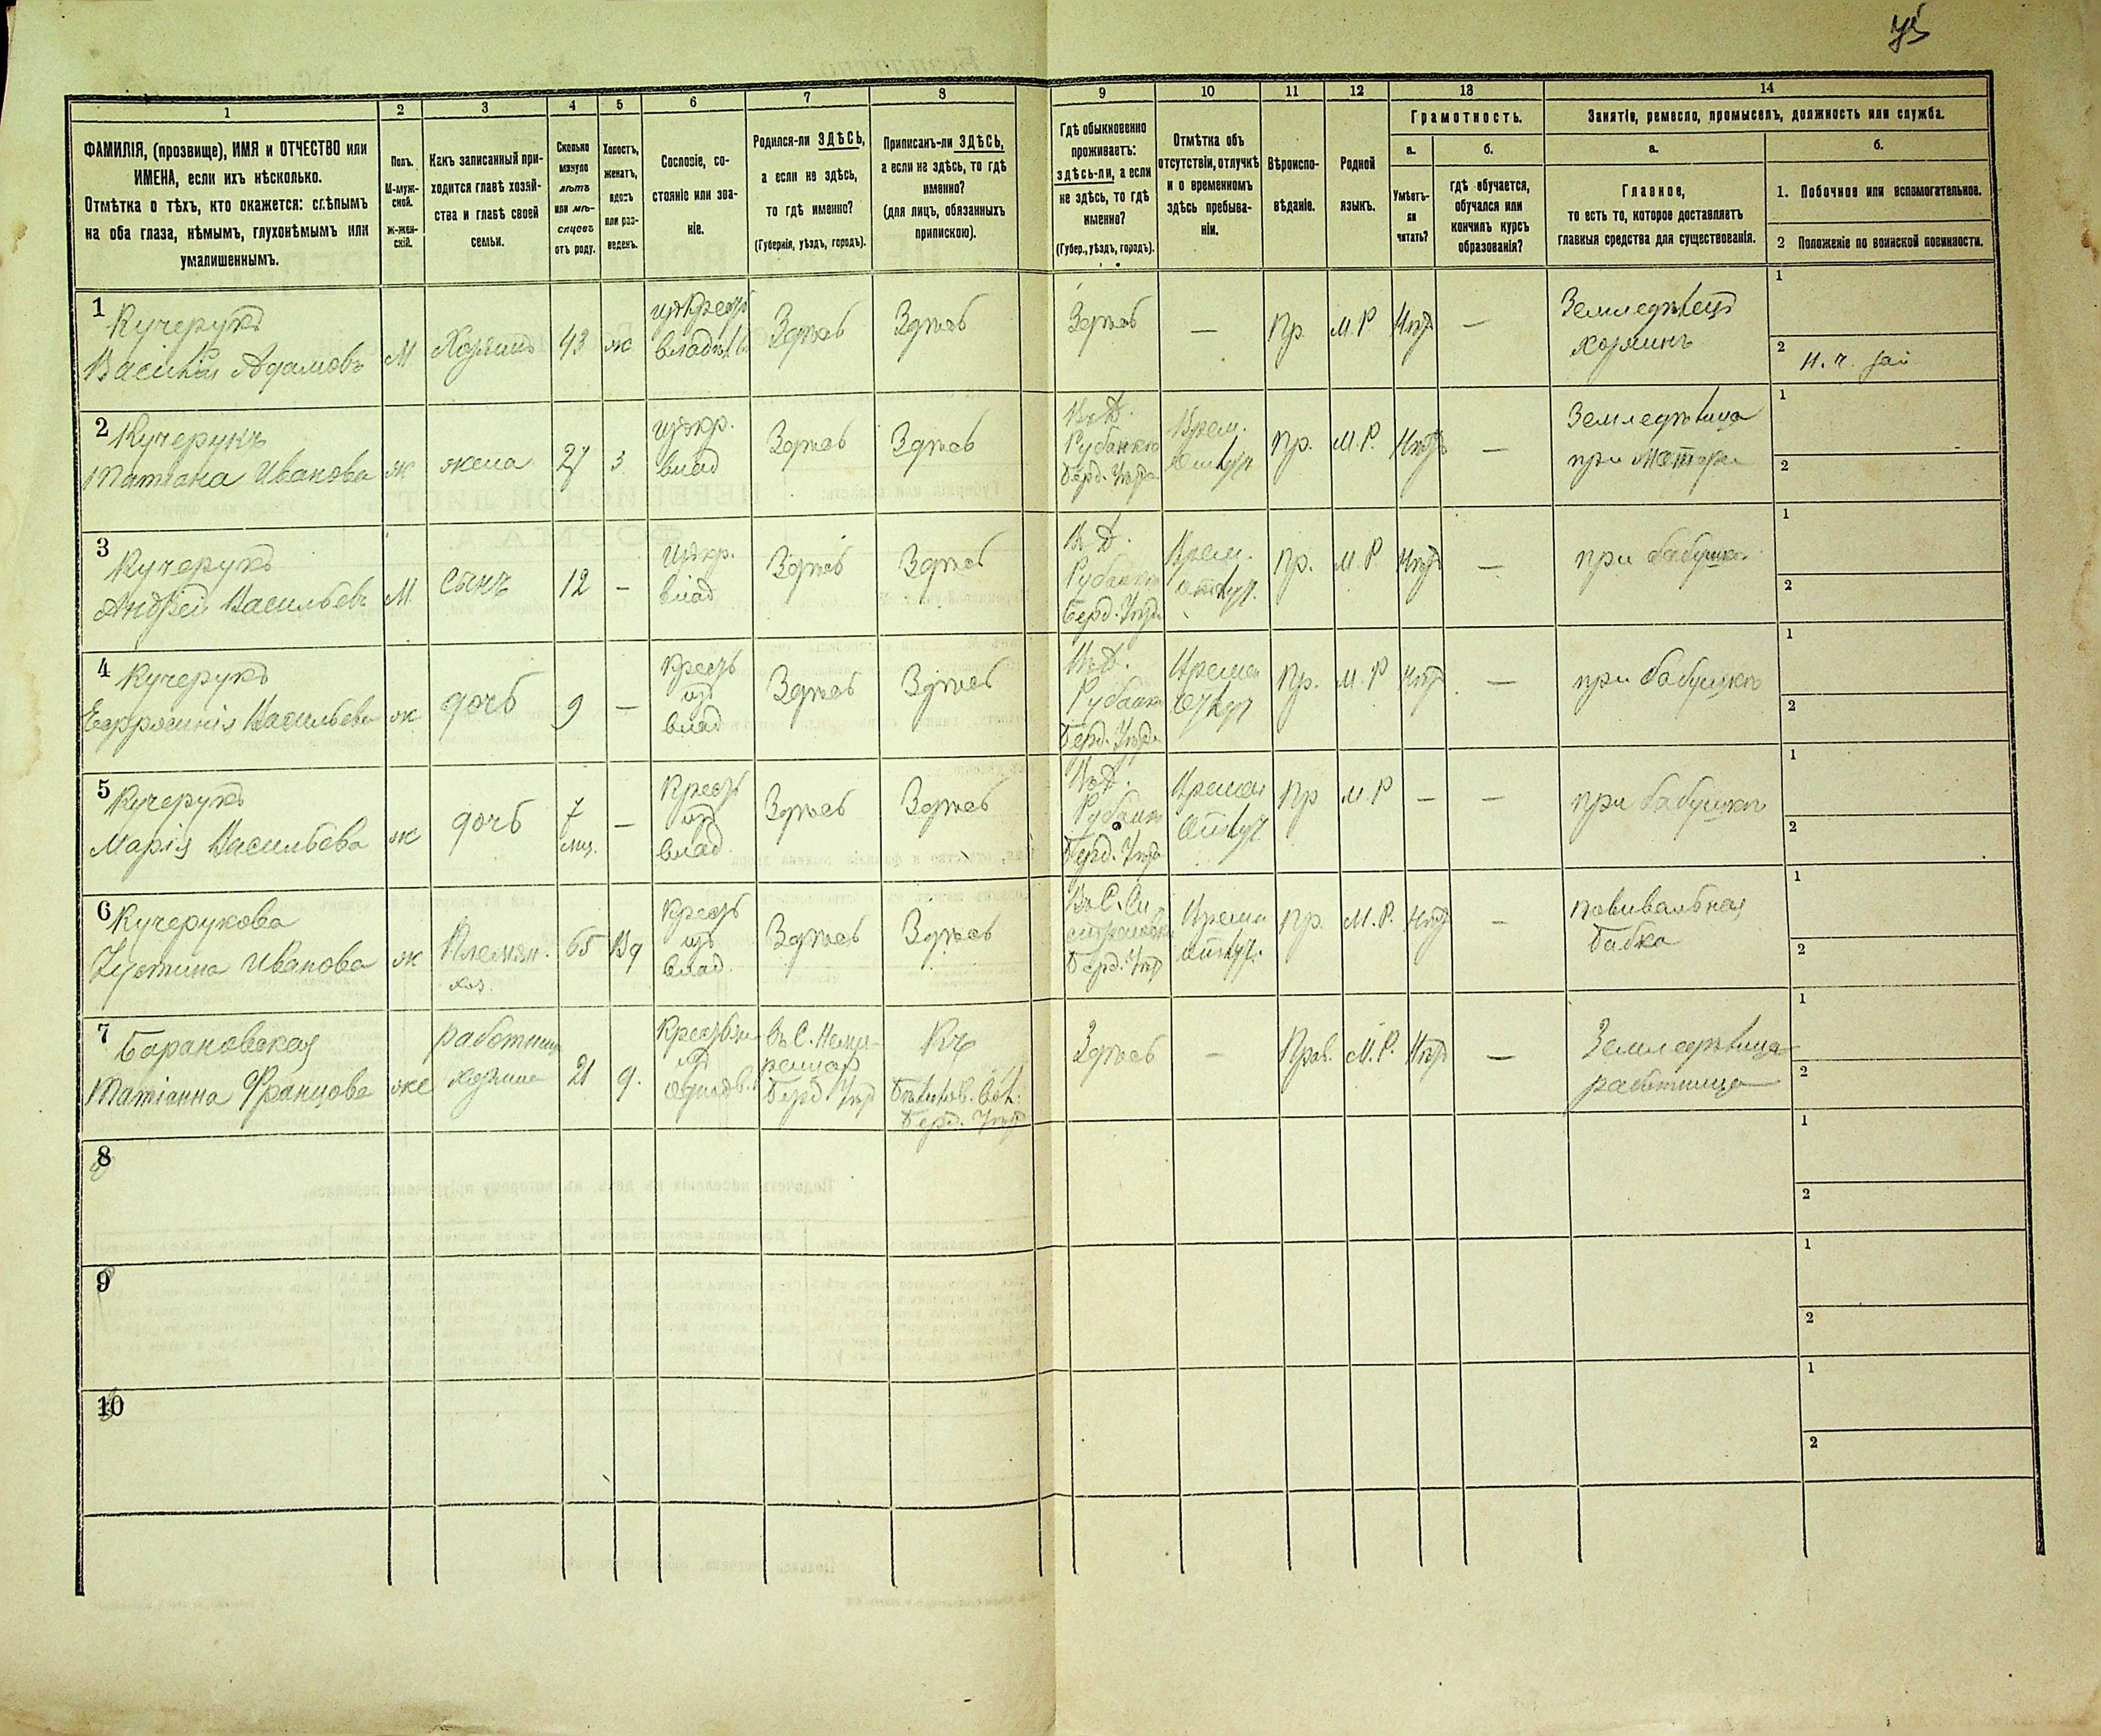 1
2
3
4
5
6
7
8
9
10
11
12
13
14
ФАМИЛІЯ, (прозвище), ИМЯ и ОТЧЕСТВО или
ИМЕНА, если ихъ нѣсколько.
Отмѣтка о тѣхъ, кто окажется: слѣпымъ
на оба глаза, нѣмымъ, глухонѣмымъ или
умалишеннымъ.
Полъ.
М-муж-
ской.
Ж-жен-
скій.
Какъ записанный при-
ходится главѣ хозяй-
ства и главѣ своей
семьи.
Сколько
минуло
лѣтъ
или мѣ-
сяцевъ
отъ роду.
Холостъ,
женатъ,
вдовъ
или раз-
веденъ.
Сословіе, со-
стояніе или зва-
ніе.
Родился-ли ЗДѢСЬ,
а если не здѣсь,
то гдѣ именно?
(Губернія, уѣздъ, городъ).
Приписанъ-ли ЗДѢСЬ,
а если не здѣсь, то гдѣ
именно?
(для лицъ, обязанныхъ
припискою).
Гдѣ обыкновенно
проживаетъ:
здѣсь-ли, а если
не здѣсь, то гдѣ
именно?
(Губер., уѣздъ, городъ).
Отмѣтка объ
отсутствіи, отлучкѣ
и о временномъ
здѣсь пребыва-
ніи.
Вѣроиспо-
вѣданіе.
Родной
языкъ.
Грамотность.
а.
Умѣетъ-
ли
читать?
б.
гдѣ обучается,
обучался или
кончилъ курсъ
образованія?
Занятіе, ремесло, промыселъ, должность или служба.
а.
Главное,
то есть то, которое доставляетъ
главныя средства для существованія.
б.
1. Побочное или вспомогательное.
2 Положеніе по воинской повинности.
1 Кучерукъ
Василій Адамовъ
М
Хозяинъ
43
ж
Здѣсь
Здѣсь
Здѣсь
—
Пр.
М.Р
Нѣтъ
—
Земледѣлецъ
хозяинъ
1
2
2 Кучерукъ
Татіана Иванова
ж
жена
27
з.
изъ кр.
влад
Здѣсь
Здѣсь
Въ Д.
Рубанкѣ
Берд. Уѣзда
Врем.
Пр.
М.Р.
Нѣтъ
—
Земледѣлица
при матери
1
2
3 Кучерукъ
Андрей Васильевъ
М
Сынъ
12
—
изъ кр.
влад
Здѣсь
Здѣсь
Въ Д.
Рубанкѣ
Берд. Уѣзда
Врем.
отлуч.
Пр.
М.Р
Нѣтъ
—
при бабушкѣ
1
2
4 Кучерукъ
Евфросинія Васильева
ж
дочь
9
—
Крест
изъ
влад
Здѣсь
Здѣсь
Въ Д.
Рубанкѣ
Берд. Уѣзда
Времен
Отлуч
Пр.
М.Р
Нѣтъ
—
при бабушкѣ
1
2
5 Кучерукъ
Марія Васильева
ж
дочь
7
мѣс.
—
Крест
изъ
влад.
Здѣсь
Здѣсь
Въ Д.
Рубанкѣ
Берд. Уѣзда
Времен
Отлуч
Пр
М.Р
—
—
при бабушкѣ
1
2
6 Кучерукова
Іустина Иванова
ж
Племян.
хоз.
65
Вд
Крест
изъ
влад.
Здѣсь
Здѣсь
Берд. Уѣз
Времен
Отлуч.
Пр.
М.Р.
Нѣтъ
—
повивальная
бабка
1
2
7 Барановская
Татіанна Францова
же
работница
хозяина
21
д.
Берд. Уѣз
Берд. Уѣз
Здѣсь
—
Прав.
М.Р.
Нѣтъ
—
Земледѣлица
работница
1
2
8
1
2
9
1
2
10
1
2